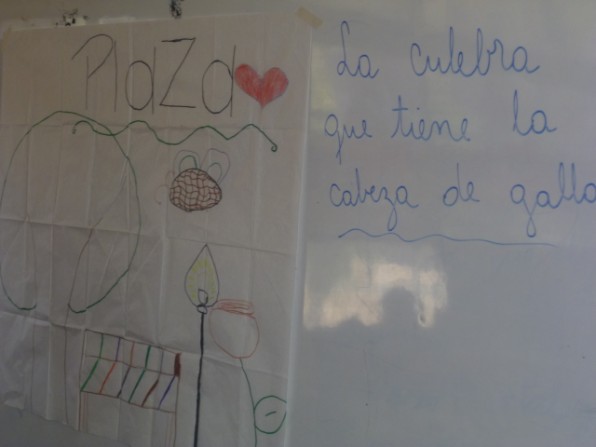 PlaZa
La culebra
que tiene la
cabeza de gallo